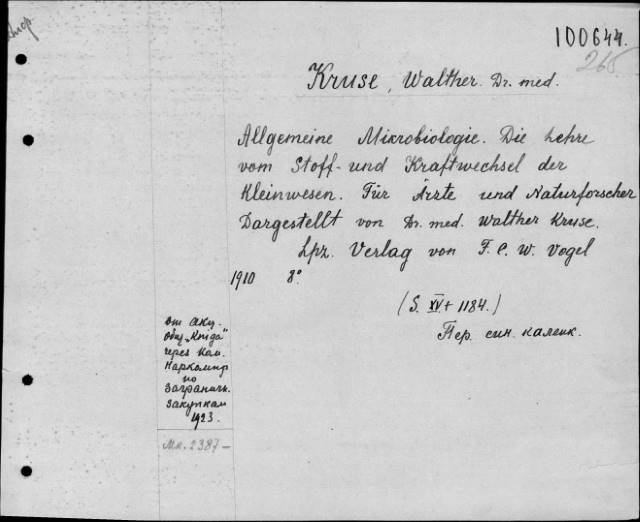 100644.
265
Kruse, Walther. Dr. med.
Allgemeine Mikrobiologie. Die Lehre
vom Stoff- und Kraftwechsel der
Kleinwesen. Für Ärzte und Naturforscher
Dargestellt von Dr. med. Walther Kruse.
Lpz. Verlag von F. C. W. Vogel
1910 8°
(S. XV + 1184.)
Пер. син. каленк.
от Акц.
Общ. „Kniga"
через Ком.
Наркомпр
по
Загранич.
Закупкам
1923.
Мк. 2387-